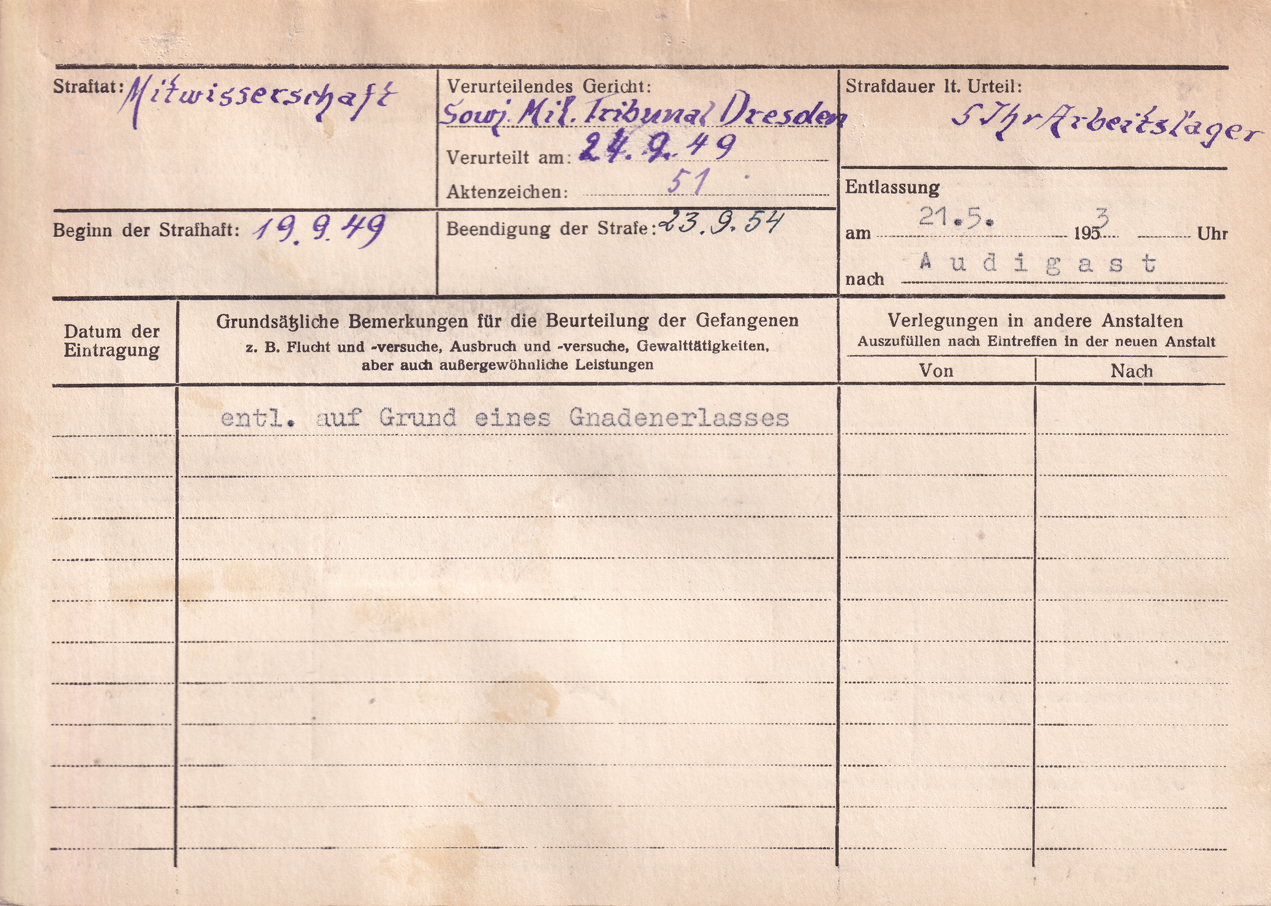 Straftat: Mitwisserschaft
Verurteilendes Gericht:
Sowj. Mil. Tribunal Dresden
Verurteilt am: 24.9.49
Aktenzeichen: 51
Strafdauer lt. Urteil:
5 Jhr Arbeitslager
Entlassung
am 21.5. 1953 Uhr
nach Audigast
Beginn der Strafhaft: 19.9.49
Beendigung der Strafe: 23.9.54
Datum der
Eintragung
Grundsätzliche Bemerkungen für die Beurteilung der Gefangenen
z. B. Flucht und -versuche, Ausbruch und -versuche, Gewalttätigkeiten,
aber auch außergewöhnliche Leistungen
Verlegungen in andere Anstalten
Auszufüllen nach Eintreffen in der neuen Anstalt
Von Nach
entl. auf Grund eines Gnadenerlasses